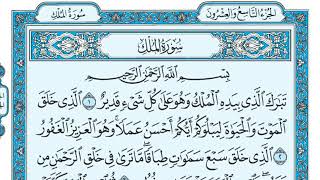 الجزء التاسع والعشرون
سورة الملك
سُورَةُ المُلْكِ
بِسْمِ اللَّهِ الرَّحْمَٰنِ الرَّحِيمِ
تَبَٰرَكَ الَّذِي بِيَدِهِ الْمُلْكُ وَهُوَ عَلَىٰ كُلِّ شَيْءٍ قَدِيرٌ ١ الَّذِي خَلَقَ
الْمَوْتَ وَالْحَيَوٰةَ لِيَبْلُوَكُمْ أَيُّكُمْ أَحْسَنُ عَمَلًا وَهُوَ الْعَزِيزُ الْغَفُورُ
٢ الَّذِي خَلَقَ سَبْعَ سَمَٰوَٰتٍ طِبَاقًا مَّا تَرَىٰ فِي خَلْقِ الرَّحْمَٰنِ مِن